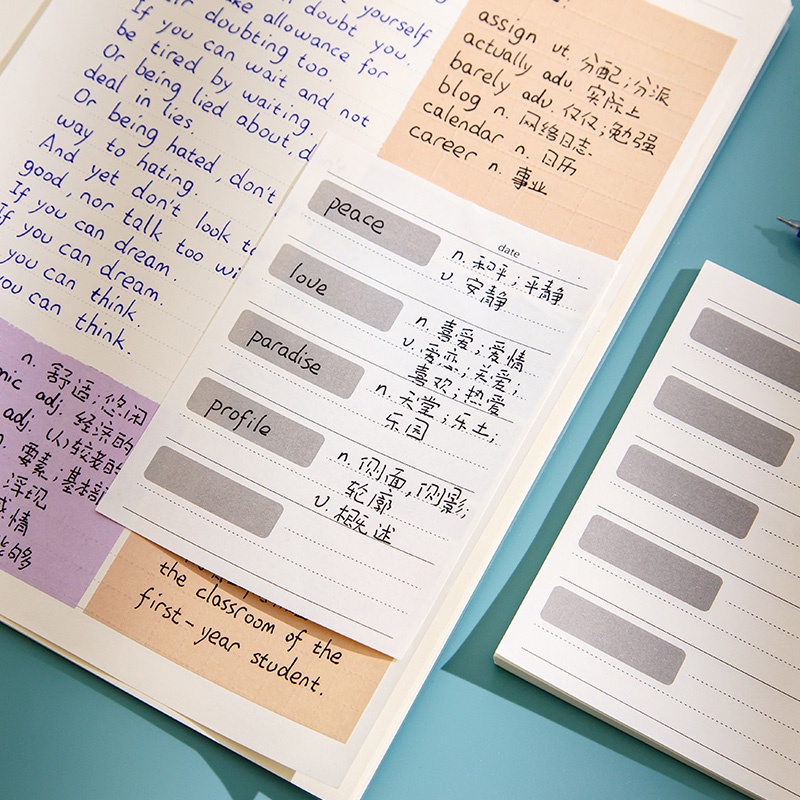 yourself
make allowance for
doubt you,
their doubting too.
If you can wait and not
be tired by waiting.
Or being lied about, d
deal in lies.
Or being hated, don't
way to hating.
And yet don't look to
good, nor talk too wi
If you can dream.
If you can dream.
you can think.
you can think.
assign vt. 分配；分派
actually adv. 实际上
barely adv. 仅仅；勉强
blog n. 网络日志.
calendar n. 日历
career n. 事业
date
peace
n. 和平；平静
v. 安静
love
n. 喜爱；爱情
v. 爱恋；关爱；
喜欢；热爱
paradise
n. 天堂；乐土；
乐园
profile
n. 侧面，侧影；
轮廓
v. 概述
n. 舒适；悠闲
mic adj. 经济的
adj. (人)较差的
n. 要素；基本部
浮现
感情
能够
the classroom of the
first-year student.